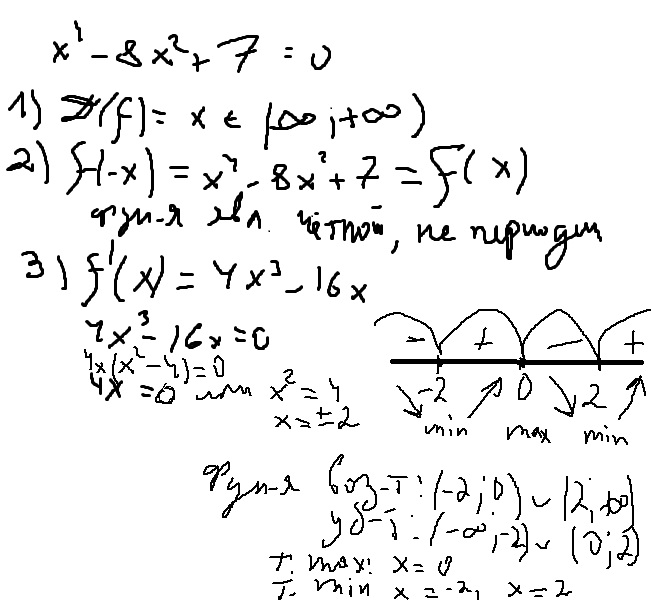 x⁴ - 8x² + 7 = 0
1) D(f) = x ∈ (-∞; +∞)
2) f(-x) = x⁴ - 8x² + 7 = f(x)
фун-я явл. чётной, не периодич
3) f'(x) = 4x³ - 16x
4x³ - 16x = 0
4x(x² - 4) = 0
4x = 0 или x² = 4
x = ±2
- + - +
-2 0 2
min max min
Фун-я воз-т: (-2; 0) ∪ (2; +∞)
уб-т: (-∞; -2) ∪ (0; 2)
т. max: x = 0
т. min x = -2, x = 2